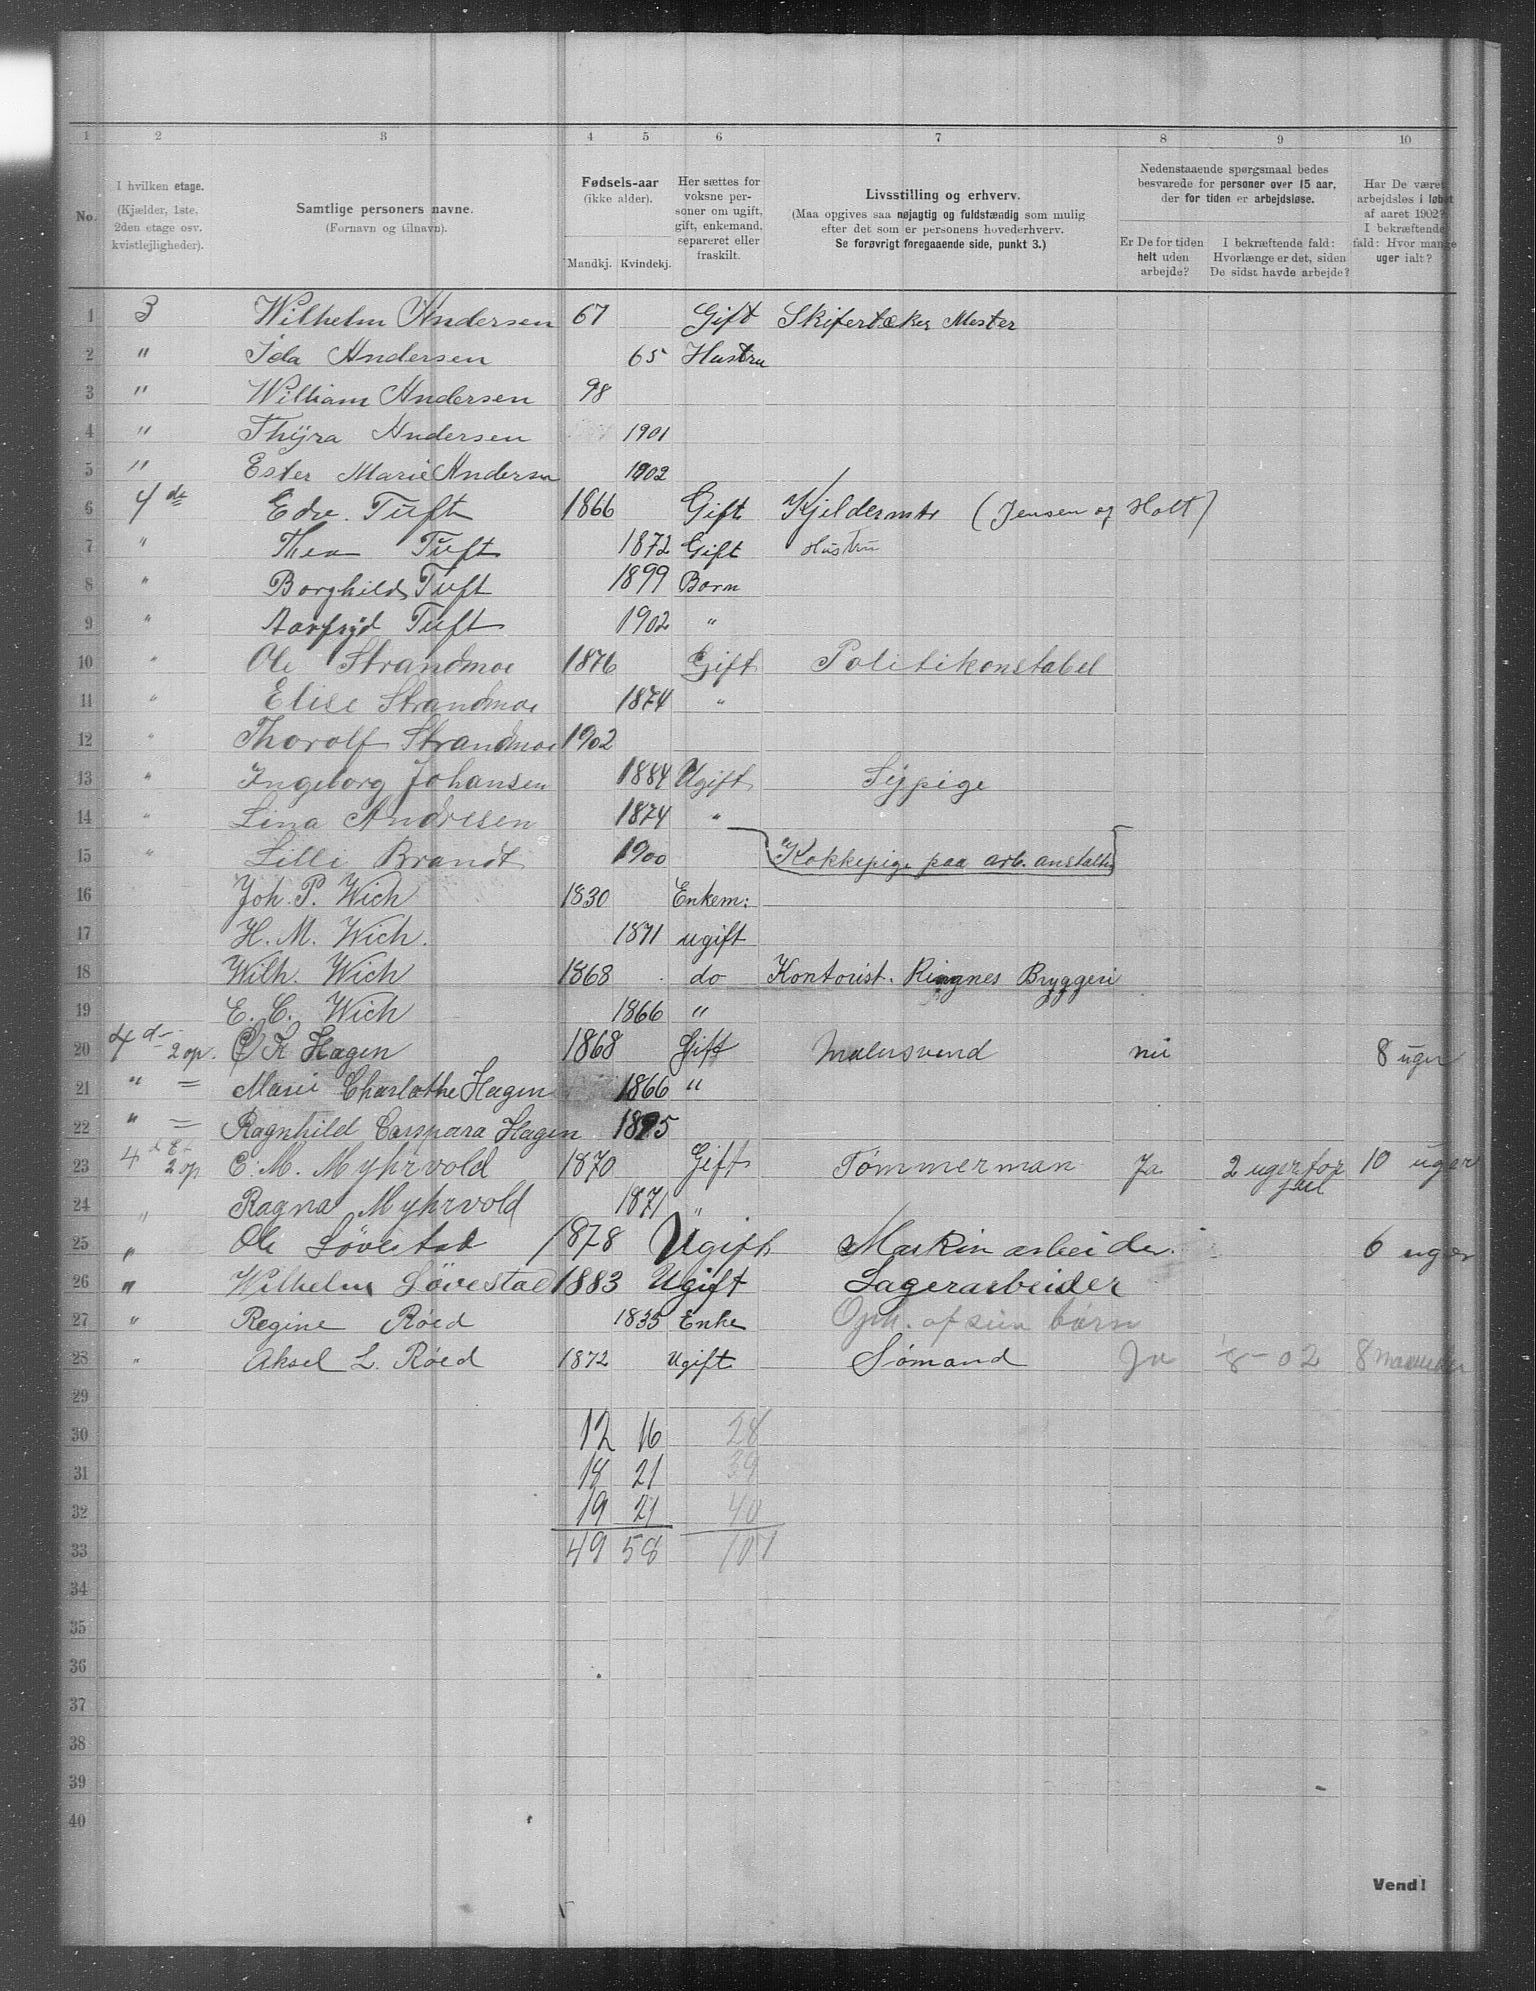 1 2 3 4 5 6 7 8 9 10
No.
I hvilken etage.
(Kjælder, 1ste,
2den etage osv.
kvistlejligheder).
Samtlige personers navne.
(Fornavn og tilnavn).
Fødsels-aar
(ikke alder).
Mandkj. Kvindekj.
Her sættes for
voksne per-
soner om ugift,
gift, enkemand,
separeret eller
fraskilt.
Livsstilling og erhverv.
(Maa opgives saa nøjagtig og fuldstændig som mulig
efter det som er personens hovederhverv.
Se forøvrigt foregaaende side, punkt 3.)
Nedenstaaende spørgsmaal bedes
besvarede for personer over 15 aar,
der for tiden er arbejdsløse.
Er De for tiden
helt uden
arbejde?
I bekræftende fald:
Hvorlænge er det, siden
De sidst havde arbejde?
Har De været
arbejdsløs i løbet
af aaret 1902?
I bekræftende
fald: Hvor mange
uger ialt?
1 3 Wilhelm Andersen 67 Gift Skifertæker Mester
2 " Ida Andersen 65 Hustru
3 " William Andersen 98
4 " Thyra Andersen 1901
5 " Ester Marie Andersen 1902
6 4de Edv. Tuft 1866 Gift Kjeldermstr (Jensen og Holt)
7 " Thea Tuft 1872 Gift Hustru
8 " Borghild Tuft 1899 Barn
9 " Tuft 1902 "
10 " Ole Strandmoe 1876 Gift Politikonstabel
11 " Elise Strandmoe 1874 "
12 " Thorolf Strandmoe 1902
13 " Ingeborg Johansen 1884 Ugift Sypige
14 " Lina Andresen 1874 "
15 " Lilli Brandt 1900 Kokkepige paa arb. anstalten
16 Joh. P. Wich 1830 Enkem:
17 H. M. Wich. 1871 ugift
18 Wilh. Wich 1868 do Kontorist. Ringnes Bryggeri
19 E. C. Wich 1866 "
20 4d 2 op. Hagen 1868 Gift Malersvend nei 8 uger
21 " = Marie Charlothe Hagen 1866 "
22 " = Ragnhild Caspara Hagen 1895
23 4 2 op C. M. Myhrvold 1870 Gift Tømmerman Ja 2 uger for jul 10 uger
24 " Ragna Myhrvold 1871 "
25 " Ole Løvestad 1878 Ugift Maskinarbeider. 6 uger
26 " Wilhelm Løvestad 1883 Ugift Lagerarbeider
27 " Regine Røed 1835 Enke af sine børn
28 " Aksel L. Røed 1872 Ugift Sømand Ja 8-02 8 maaneder
29
30 12 16 28
31 18 21 39
32 19 21 40
33 49 58 107
34
35
36
37
38
39
40
Vend!